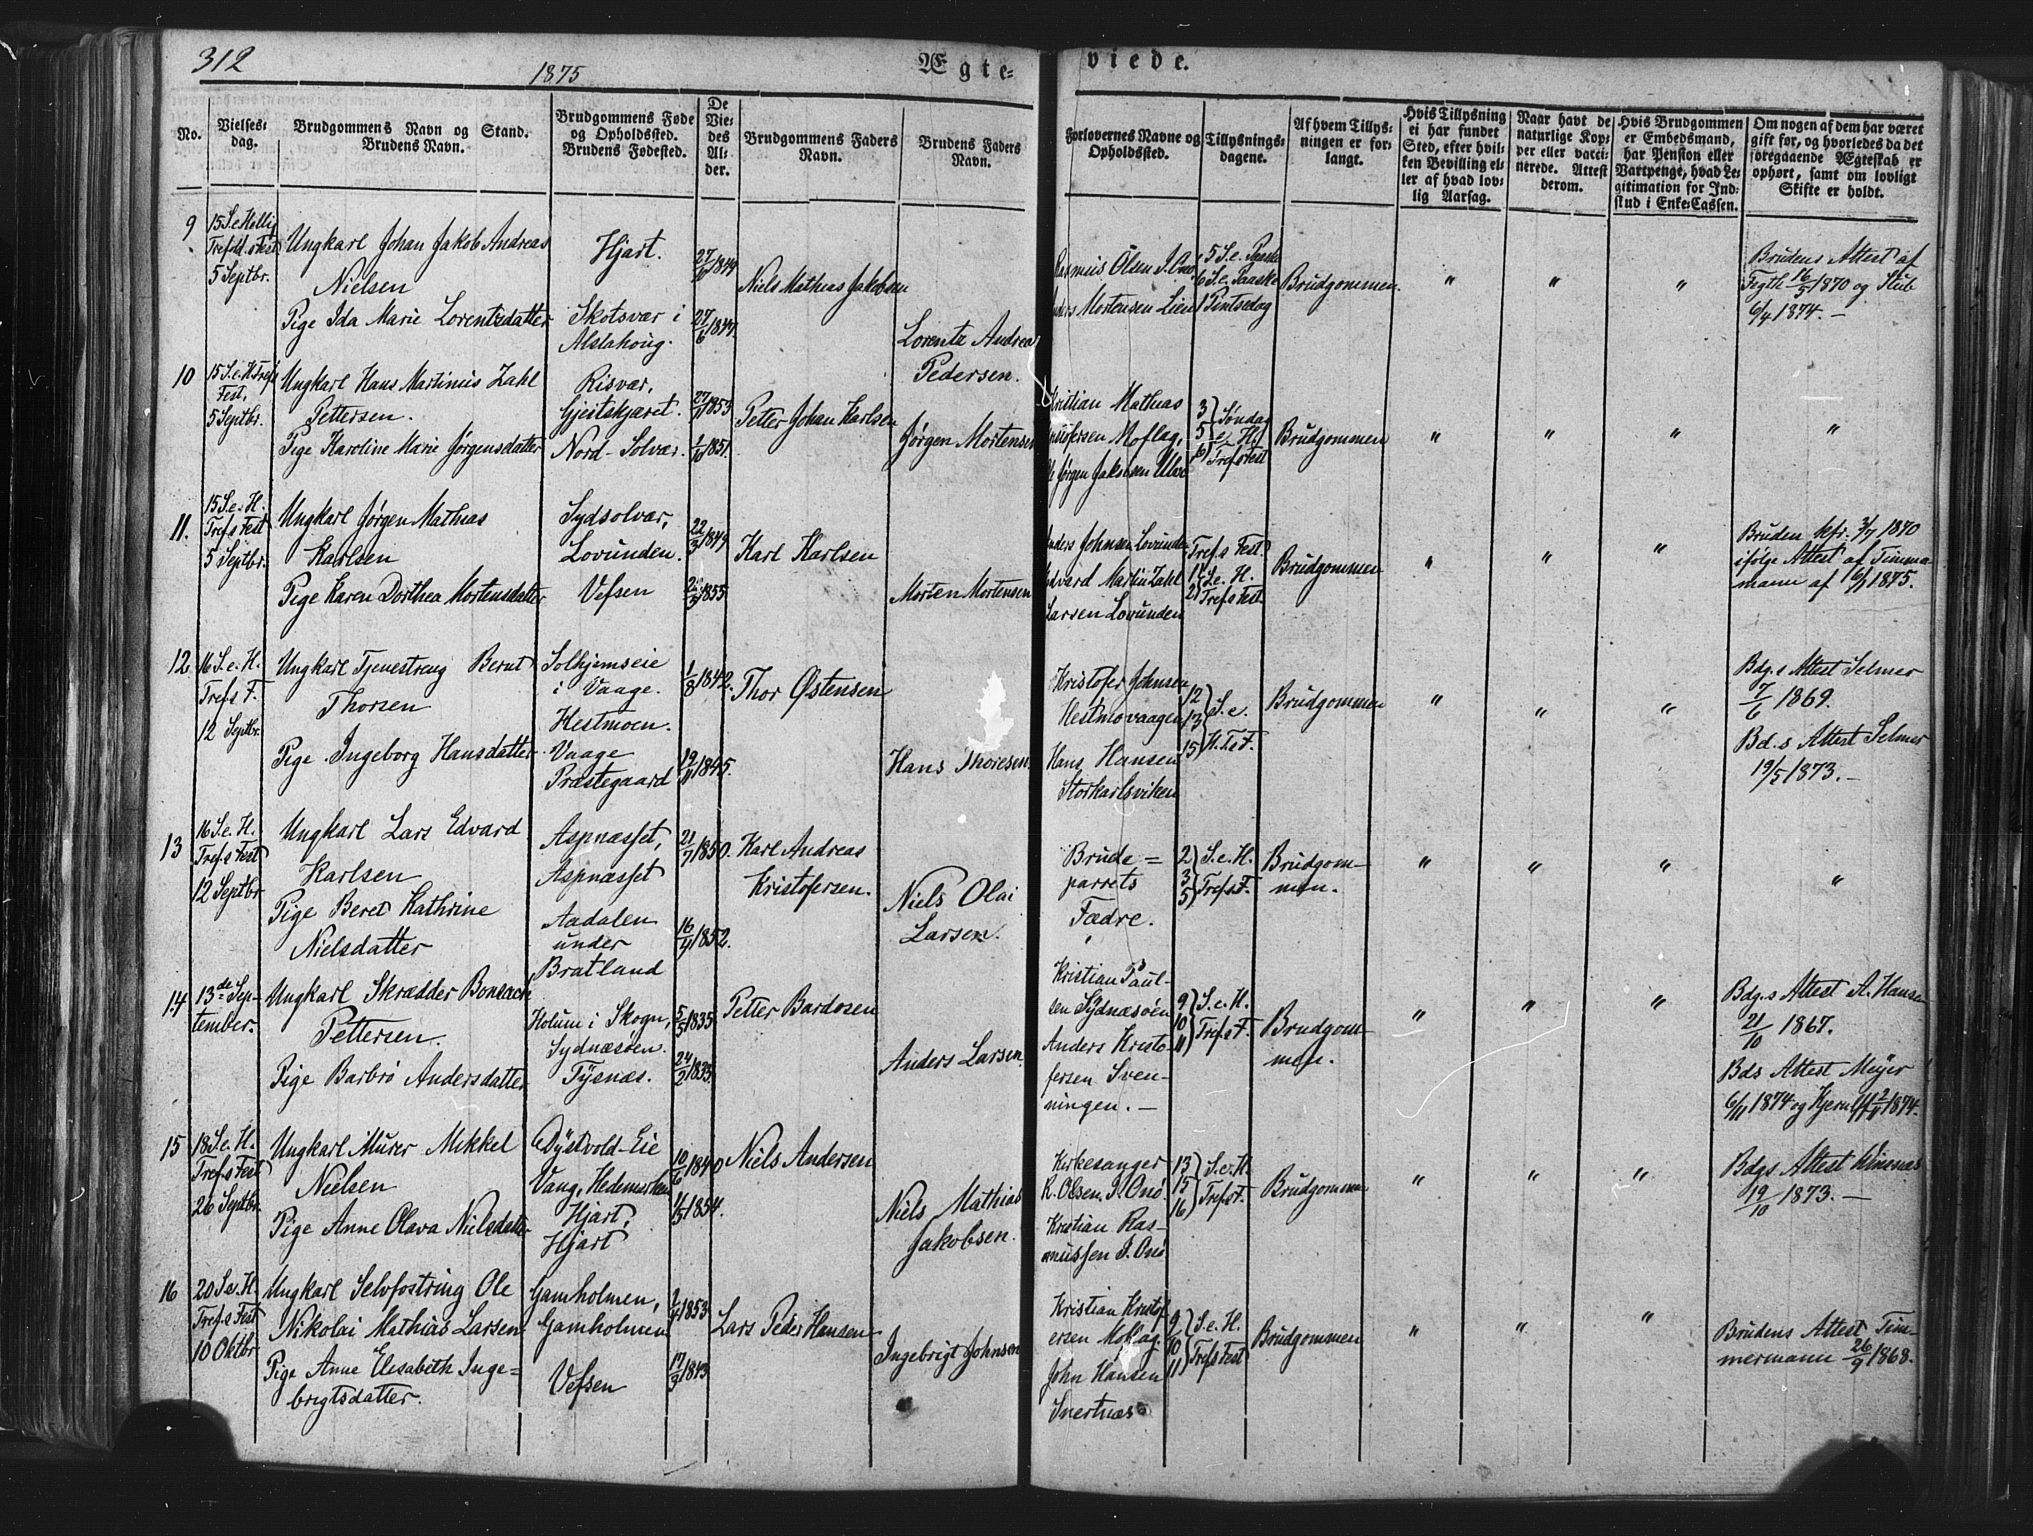 312
1875
Ægte=
viede.
No.
Vielses-
dag.
Brudgommens Navn og Stand.
Brudens Navn.
Brudgommens Føde
og Opholdssted.
Brudens Fødested.
De
Vie-
des
Al-
der.
Brudgommens Faders
Navn.
Brudens Faders
Navn.
Forlovernes Navne og
Opholdssted.
Tillysnings-
dagene.
Af hvem Tillys-
ningen er for-
langt.
Hvis Tillysning
ei har fundet
Sted, efter hvil-
ken Bevilling el-
ler af hvad lov-
lig Aarsag.
Naar havt de
naturlige Kop-
per eller vacci-
nerede. Attest
derom.
Hvis Brudgommen
er Embedsmand,
har Pension eller
Vartpenge, hvad Le-
gitimation for Ind-
skud i Enke-Cassen.
Om nogen af dem har været
gift før, og hvorledes da det
foregaaende Ægteskab er
ophørt, samt om lovligt
Skifte er holdt.
9
15 S. e Hellig
Trefold. s Fest
5 Septbr.
Ungkarl Johan Jakob Andreas
Nielsen
Pige Ida Marie Lorentzdatter
Hjart.
Skotsvær i
Alstahoug.
1844
27/6 1847.
Niels Mathias Jakobsen
Lorentz Andreas
Pedersen.
Rasmus Olsen
Anders Mortensen Lien
5 S. e. Paaske
6 S. e. Paaske
1 Pintsedag
Brudgommen
"
"
"
Brudens Attest af
Fygth 16/5 1870 og Stub
6/4 1874. —
10
15 S. e. H. Tref.s
Fest,
5 Septbr.
Ungkarl Hans Martinus Zahl
Pettersen.
Pige Karoline Marie Jørgensdatter
Risvær,
Gjeitskjæret.
Nord-Solvær.
1853
1851.
Petter Johan Karlsen
Jørgen Mortensen
Kristian Mathias
Kristofersen Moflag,
Jørgen Jakobsen
3
5
6
Søndag
e. H.
Tref.s Fest
Brudgommen
"
"
"
"
11.
15 S. e. H.
Tref.s Fest
5 Septbr.
Ungkarl Jørgen Mathias
Karlsen
Pige Karen Dorthea Mortensdatter
Sydsolvær,
Lovunden.
Vefsen
22/3 1849
1855
Karl Karlsen
Morten Mortensen
Anders Johnsen Lovunden
Edvard Martin Zahl
Larsen Lovunden
Tref.s Fest.
1 S. e. H.
2 Tref.s Fest.
Brudgommen
"
"
"
Bruden kfr. 3/7 1870
ifølge Attest af Timmer-
mann af 1875.
12
16 S. e. H.
Tref.s F.
12 Septbr.
Ungkarl Tjenestreng Bernt
Thorsen
Pige Ingeborg Hansdatter
Solhjemseie
i Vaage.
Hestmoen.
Vaage
Præstegaard
1/8 1842.
19/11 1845.
Thor Østensen
Hans Thoresen.
Kristofer Johnsen
Hestmovaagen
Hans Hansen
Storkarlsviken
12
13
15
S. e.
H. T.s F.
Brudgommen
"
"
"
Bdg.s Attest Selmer
7/6 1869.
Bd.s Attest Selmer
19/5 1873. —
13
16 S. e. H.
Tref.s Fest
12 Septbr
Ungkarl Lars Edvard
Karlsen
Pige Beret Kathrine
Nielsdatter
Aspnæsset,
Aspnæsset
Aadalen
under
Bratland
21/7 1850.
16/4 1852.
Karl Andreas
Kristofersen.
Niels Olai
Larsen.
Brude=
parrets
Fædre.
2
3
5
S. e. H.
Tref.s F.
Brudgom-
men.
"
"
"
"
14
13de Sep-
tember.
Ungkarl Skrædder Bonsach
Pettersen.
Pige Barbro Andersdatter
Holum i Skogn,
Sydnæsøen.
Tysnæs.
5/5 1835
24/2 1835.
Petter Bardosen
Anders Larsen
Kristian Paul-
sen Sydnæsøen
Anders Kristo-
fersen Sven-
ningen. —
9
10
11
S. e. H.
Tref.s F.
Brudgom-
men.
"
"
"
Bdg.s Attest A. Hansen
21/10 1867.
Bds Attest Meyer
6/11 1874 og Hjerm 2/11 1874.
15
18 S. e. H.
Tref.s Fest
26 Septbr.
Ungkarl Murer Mikkel
Nielsen
Pige Anne Olava Nielsdatter
Dystvold-Eie
Vang, Hedemarken
Hjart,
Hjart
10/6 1840
4/5 1854.
Niels Andersen
Niels Mathias
Jakobsen.
Kirkesanger
R. Olsen I. Onø.
Kristian Ras-
mussen I. Onø
13
15
16
S. e. H.
Tref.s F.
Brudgommen
"
"
"
Bdgs Attest Kinsnæs
19/10 1873. —
16
20 S. e. H.
Tref.s Fest
10 Oktbr
Ungkarl Selvfostring Ole
Nikolai Mathias Larsen
Pige Anne Elisabeth Inge=
brigtsdatter.
Gamholmen,
Gamholmen
Vefsen
1853
17/3 1843
Lars Peder Hansen
Ingebrigt Johnsen
Kristian Kristof-
ersen Moflag.
John Hansen
Svertnæs
9
10
11
S. e. H.
Trefs Fest
Brudgommen
"
"
"
Brudens Attest Tim-
mermann 26/9 1868.